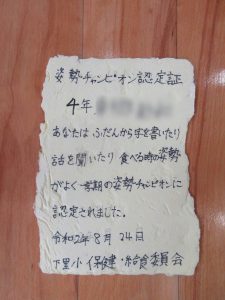 姿勢チャンピオン認定証
4年
あなたは ふだんから字を書いたり
話を聞いたり 食べる時の姿勢
がよく 学期の姿勢チャンピオンに
認定されました。
令和2年8月24日
下里小 保健・給食委員会